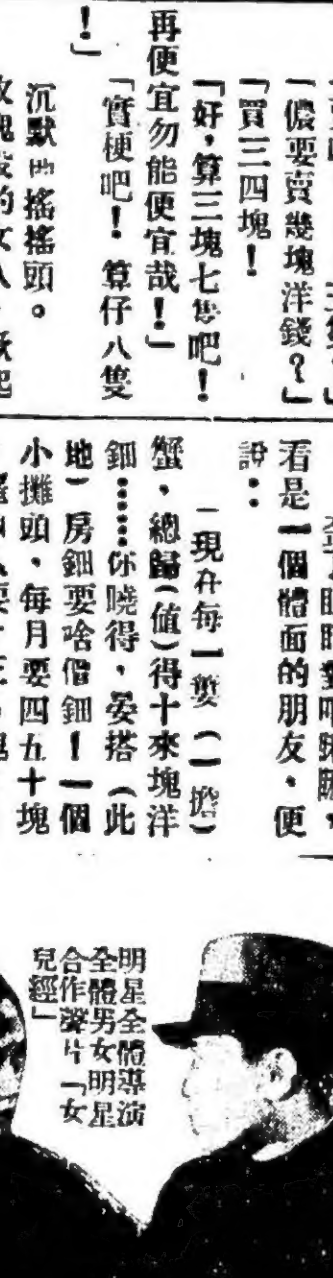 「儂要賣幾塊洋錢?」
「買三四塊!
「好,算三塊七隻吧!
再便宜勿能便宜哉!」
「實梗吧!算仔八隻
!」
沉默的搖搖頭。
看是一個體面的朋友,便
說:
一現在每一簍(一擔)
蟹,總歸(值)得十來塊洋
鈿……你曉得,晏搭(此
地)房鈿要啥價鈿!一個
小攤頭,每月要四五十塊
明星全體導演
全體男女明星
合作聲片「女
兒經」